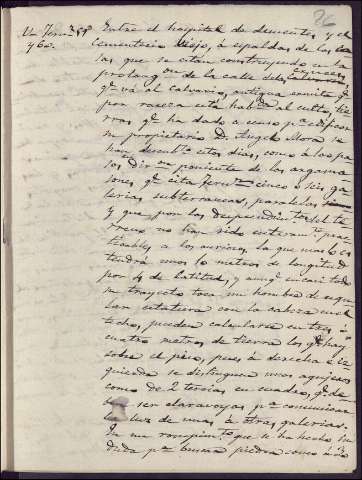 26
Entre el hospital de dementes, y el
y 60.
cementerio viejo, á espaldas de las ca
sas que se están construyendo en la
prolongon. de la calle del
qe. vá al calvario, antigua ermita qe.
por rareza está habda. al culto, tie
rras qe. ha dado a censo pa. edificar
su propietario D. Angel Mora se
han descubto. estos dias, como á los pa
sos dir on poniente de las argama
sones, qe. cita cinco ó seis ga
lerias subterraneas, paralelas
y que por los desprendimtos. del te
rreno no han sido enteramte. prac
ticables á los curiosos, la que mas lo es
tendrá unos 10 metros de longitud
por 4 de latitud, y aunqe. en casi todo
su trayecto toca un hombre de regu
lar estatura con la cabeza en el
techo, pueden calcularse en tres ó
cuatro metros de tierra los qe. hay
sobre el piso, pues á derecha é iz
quierda se distinguen unos agujeros
como de 2 tercias en cuadro, qe. de
ben ser claravoyas pa. comunicar
la luz de unas á otras galerias.
En un rompimto. que se ha hecho sin
duda pa. buscar piedra como á do